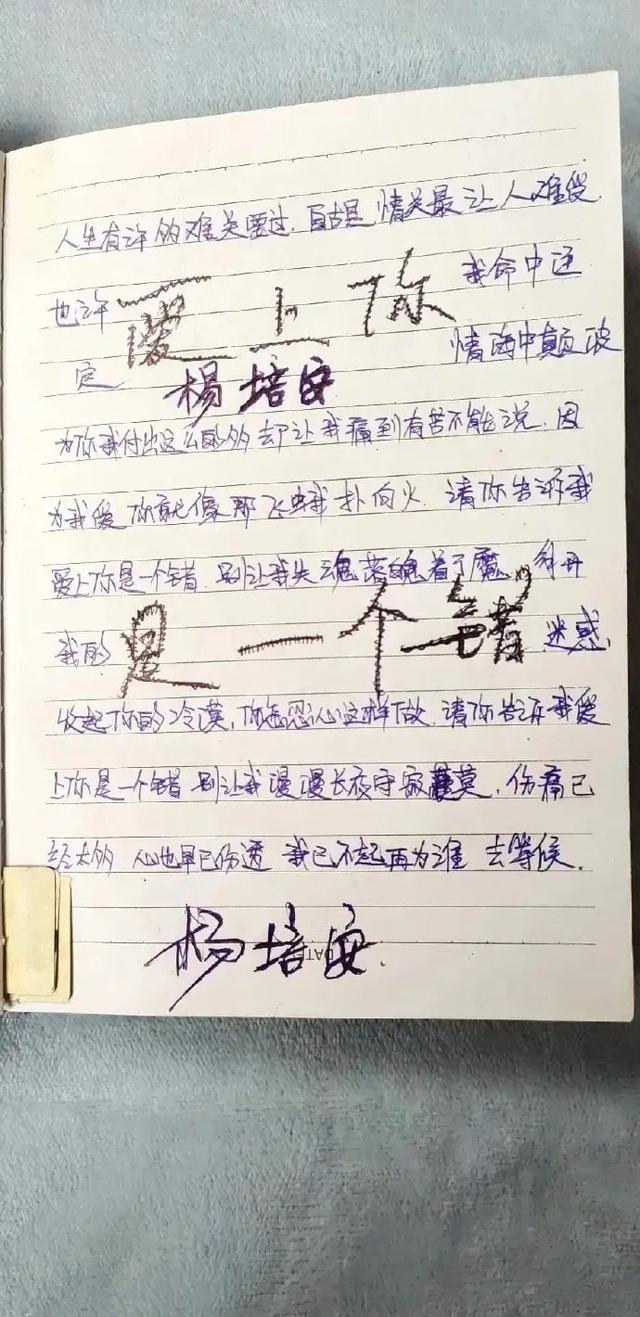 人生有许多难关要过.自古是情关最让人难受.
也许 爱上你 我命中还
定 杨培安 情海中颠波
为你我付出这么的多却让我痛到有苦不能说.因
为我爱你就像那飞蛾扑向火.请你告诉我
爱上你是一个错.别让我失魂落魄着了魔.解开
我的 是一个错 迷惑.
收起你的冷漠,你怎忍心这样做.请你告诉我爱
上你是一个错 别让我漫漫长夜守寂莫.伤痛已
经太多 心也早已伤透 我已不起再为谁去等候.
杨培安.
DATE